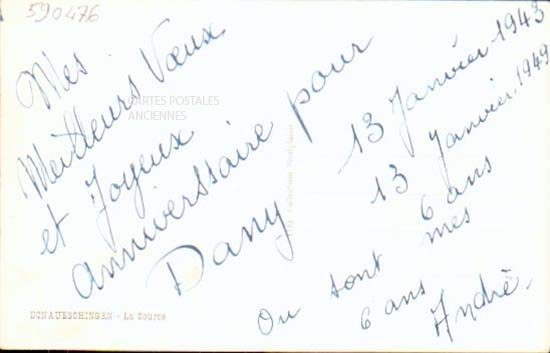 590476
Mes
Meilleurs Vœux
et Joyeux
anniverssaire pour
Dany
13 Janvier 1943
13 Janvier, 1949
6 ans
Ou sont mes
6 ans
Andrè.
CARTES POSTALES
ANCIENNES
DONAUESCHINGEN - La Source